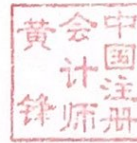 中国注册
会计师
黄锋